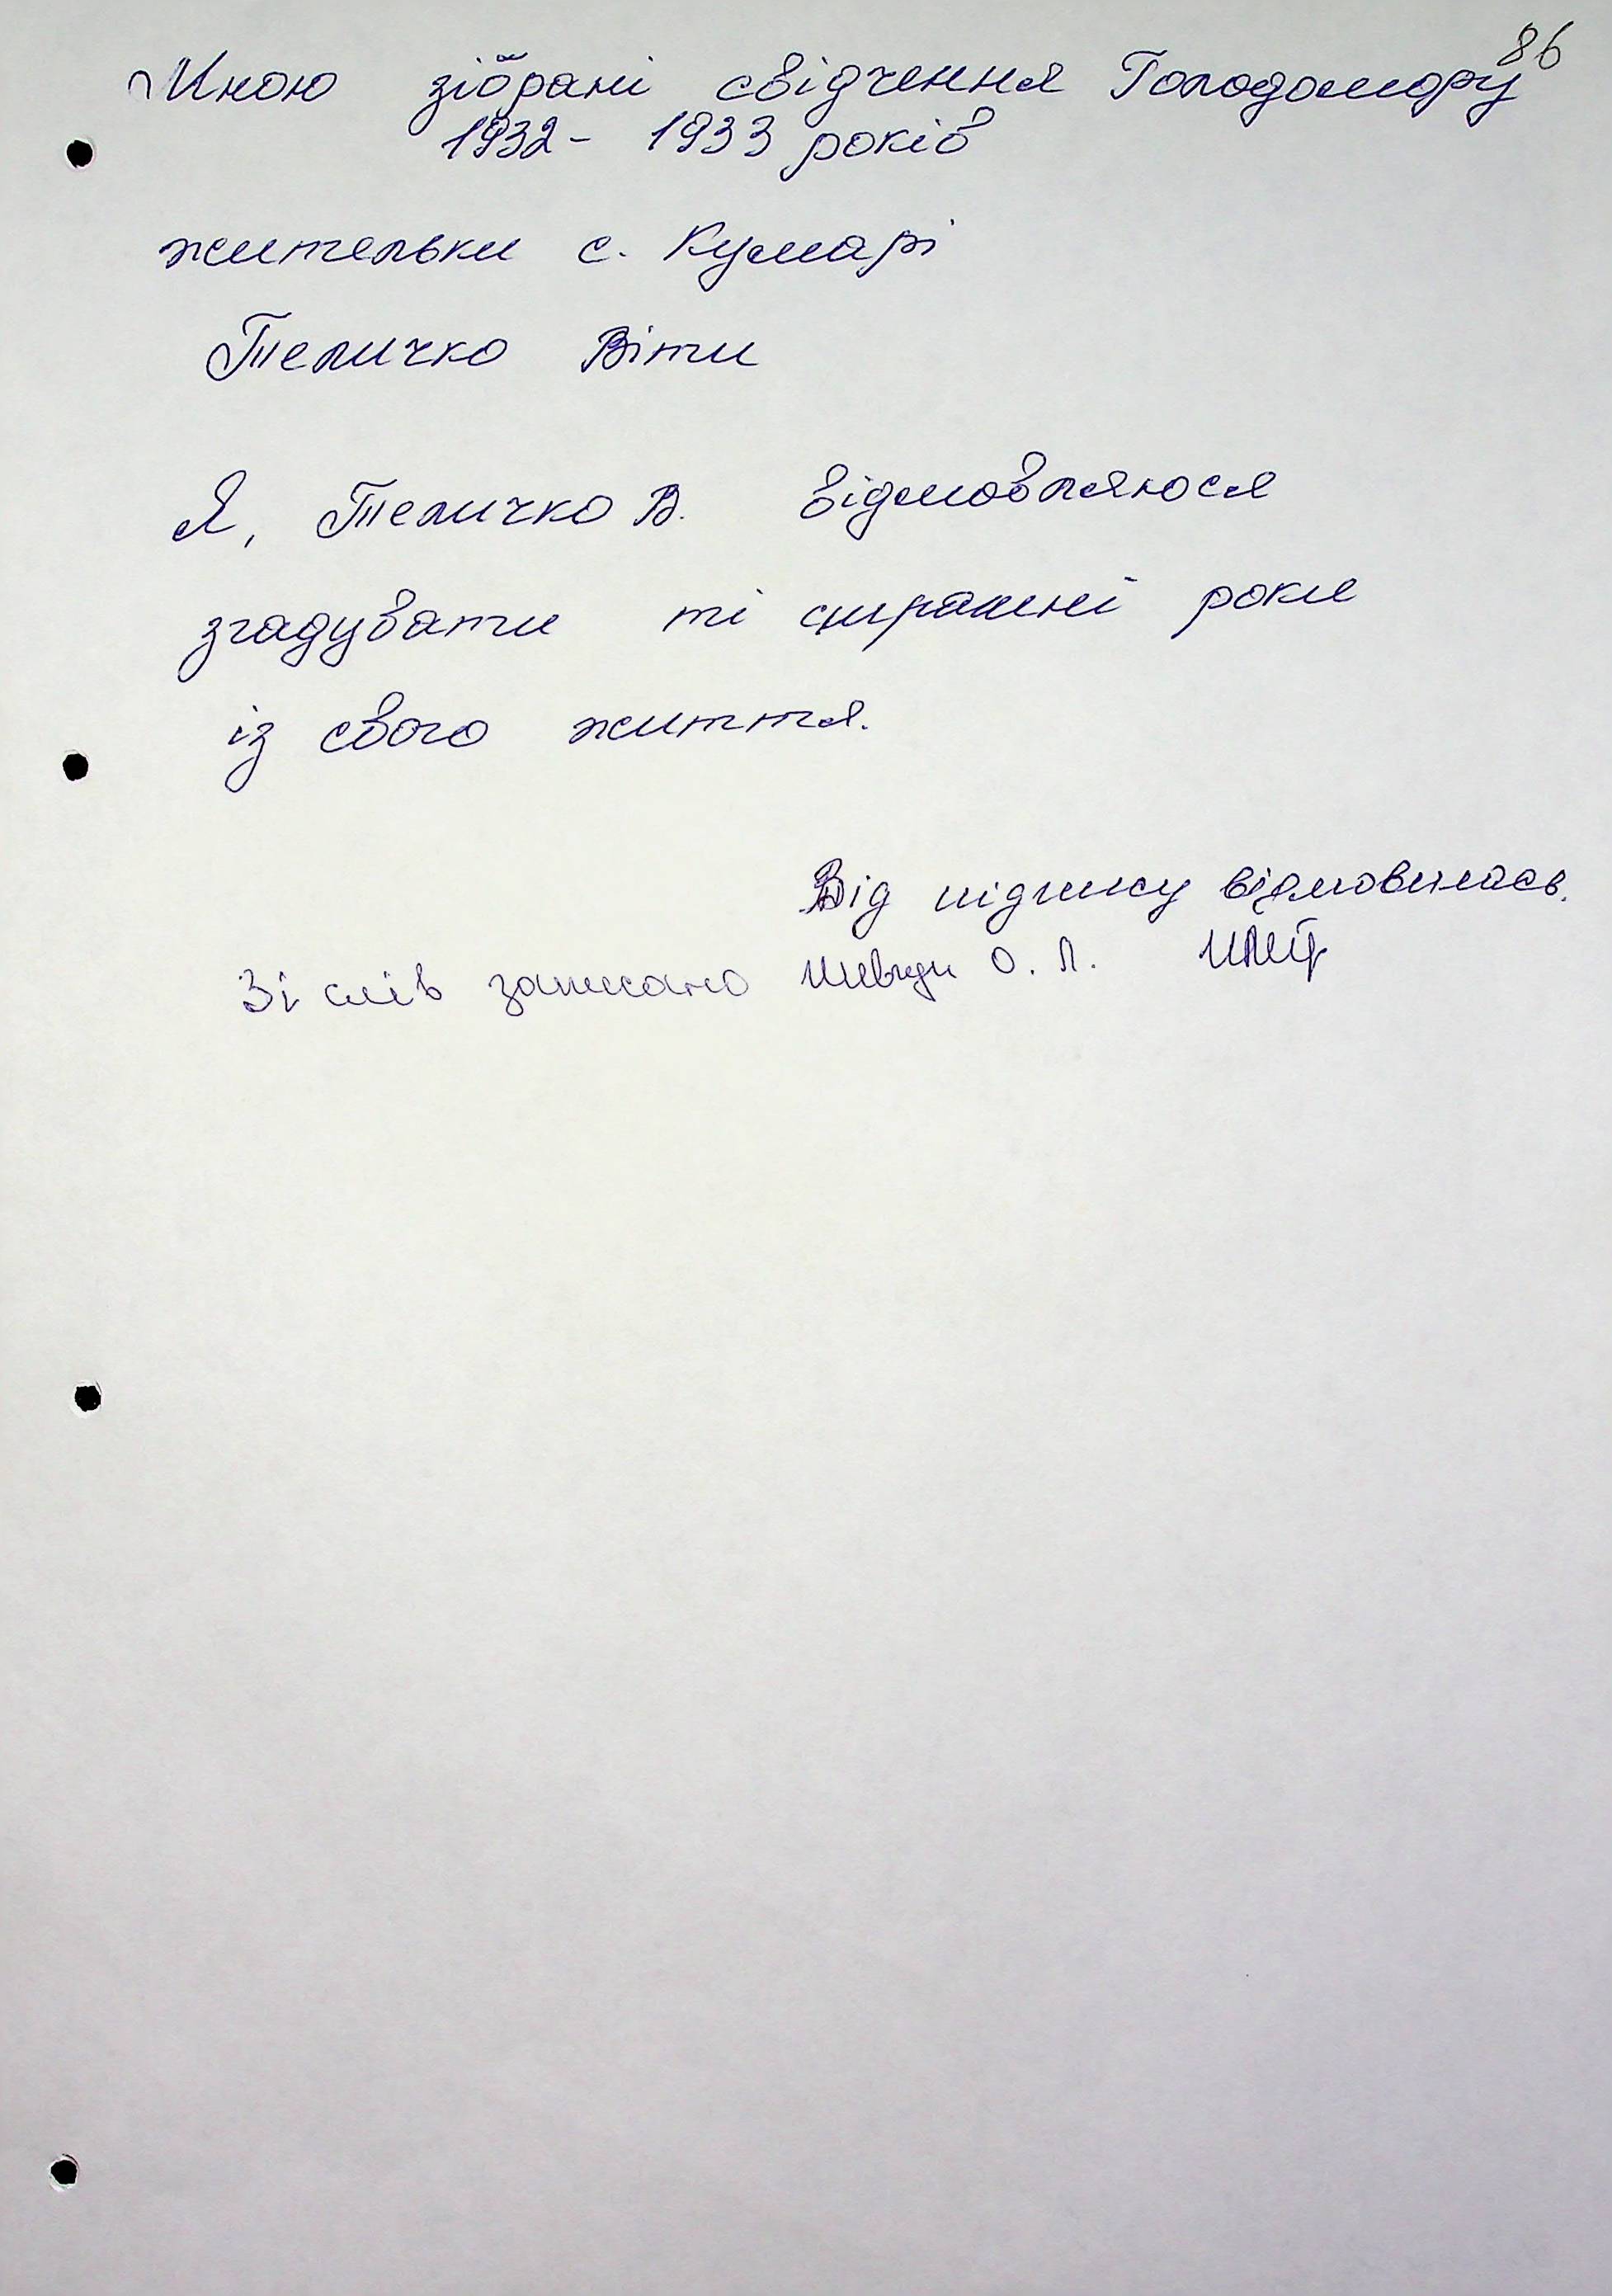 86
Мною зібрані свідчення Голодомору
1932 - 1933 років
жительки с. Кумарі
Теличко Віти
Я, Теличко В. відмовляюся
згадувати ті страшні роки
із свого життя.
Від підпису відмовилась.
Зі слів записано О. Л.